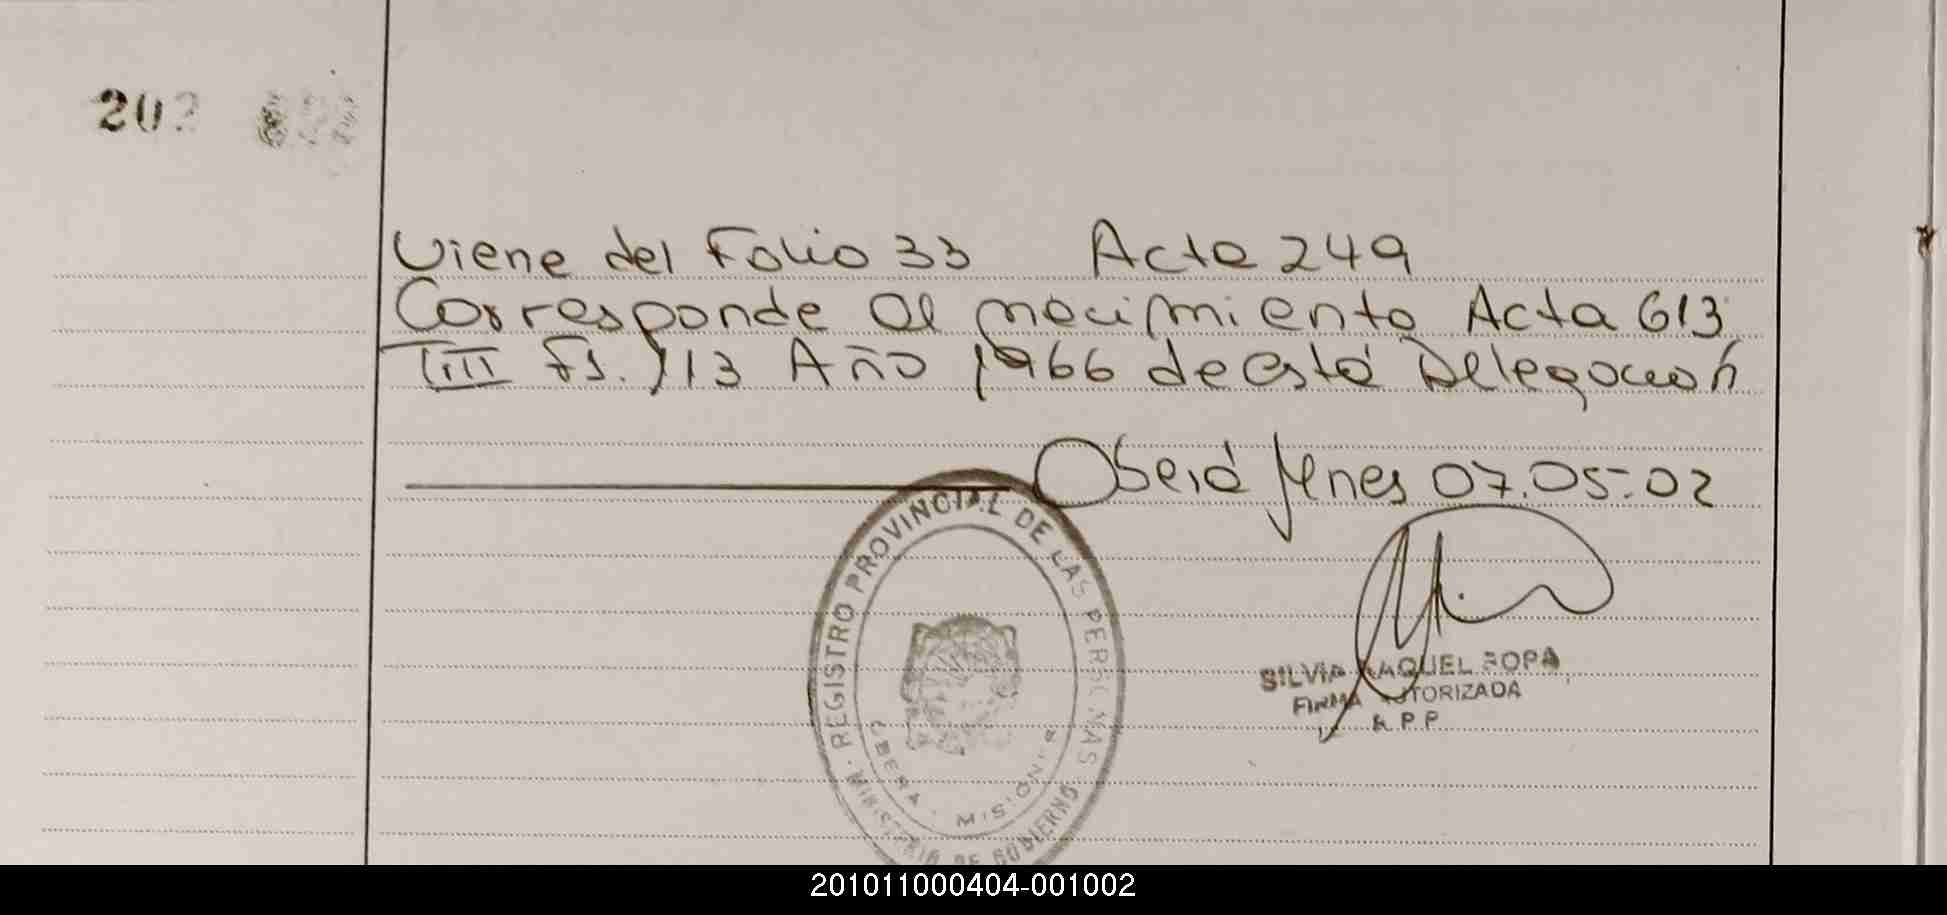 202
Viene del Folio 33 Acta 249
Corresponde al nacimiento Acta 613
TIII Fs. 113 Año 1966 de esta Delegación
Oberá Mnes 07.05.02
REGISTRO PROVINCIAL DE LAS PERSONAS
MINISTERIO DE GOBIERNO
OBERA - MISIONES
SILVIA RAQUEL POPA
FIRMA AUTORIZADA
R.P.P.
201011000404-001002